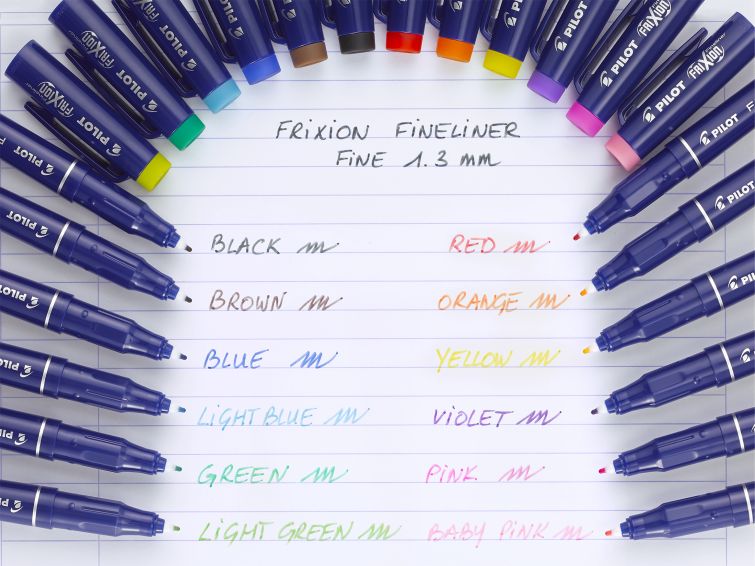 FRIXION FINELINER
FINE 1.3 mm
BLACK
BROWN
BLUE
LIGHT BLUE
GREEN
LIGHT GREEN
RED
ORANGE
YELLOW
VIOLET
PINK
BABY PINK
PILOT FRIXION
PILOT FRIXION
PILOT
PILOT
PILOT
PILOT
PILOT FRIXION
PILOT FRIXION
PILOT
PILOT
PILOT
PILOT
PILOT
PILOT
PILOT
PILOT
PILOT